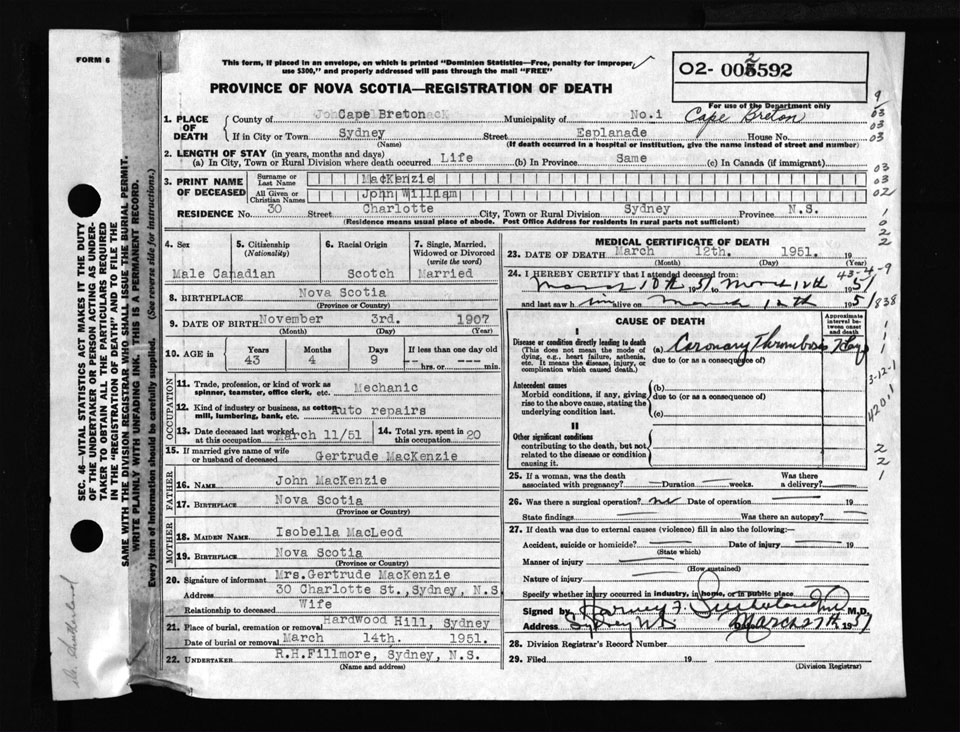 FORM 6
This form, if placed in an envelope, on which is printed "Dominion Statistics—Free, penalty for improper
use $300," and properly addressed will pass through the mail "FREE"
PROVINCE OF NOVA SCOTIA—REGISTRATION OF DEATH
O2-
592
For use of the Department only
Cape Breton
1. PLACE OF DEATH
County of Cape Breton Municipality of No.1
If in City or Town Sydney Street Esplanade House No.
(Name) (If death occurred in a hospital or institution, give the name instead of street and number)
2. LENGTH OF STAY (in years, months and days)
(a) In City, Town or Rural Division where death occurred Life (b) In Province Same (c) In Canada (if immigrant)
3. PRINT NAME OF DECEASED
Surname or Last Name MacKenzie
All Given or Christian Names John William
RESIDENCE No. 30 Street Charlotte City, Town or Rural Division Sydney Province N.S.
(Residence means usual place of abode. Post Office Address for residents in rural parts not sufficient)
4. Sex 5. Citizenship (Nationality) 6. Racial Origin 7. Single, Married, Widowed or Divorced (write the word)
Male Canadian Scotch Married
8. BIRTHPLACE Nova Scotia
(Province or Country)
9. DATE OF BIRTH November 3rd. 1907
(Month) (Day) (Year)
10. AGE in Years Months Days If less than one day old
43 4 9 --- hrs. or --- min.
OCCUPATION
11. Trade, profession, or kind of work as spinner, teamster, office clerk, etc. Mechanic
12. Kind of industry or business, as cotton mill, lumbering, bank, etc. Auto repairs
13. Date deceased last worked at this occupation March 11/51 14. Total yrs. spent in this occupation 20
15. If married give name of wife or husband of deceased Gertrude MacKenzie
FATHER
16. NAME John MacKenzie
17. BIRTHPLACE Nova Scotia
(Province or Country)
MOTHER
18. MAIDEN NAME Isobella MacLeod
19. BIRTHPLACE Nova Scotia
(Province or Country)
20. Signature of informant Mrs.Gertrude MacKenzie
Address 30 Charlotte St.,Sydney, N.S.
Relationship to deceased Wife
21. Place of burial, cremation or removal Hardwood Hill, Sydney
Date of burial or removal March 14th. 1951.
22. UNDERTAKER R.H.Fillmore, Sydney, N.S.
(Name and address)
MEDICAL CERTIFICATE OF DEATH
23. DATE OF DEATH March 12th. 1951. 19
(Month) (Day) (Year)
24. I HEREBY CERTIFY that I attended deceased from: 43-4-9
March 10th 1951 March 12th 1951
and last saw him alive on March 12th 1951
838
CAUSE OF DEATH
Approximate interval between onset and death
I
Disease or condition directly leading to death
(This does not mean the mode of dying, e.g., heart failure, asthenia, etc. It means the disease, injury, or complication which caused death.)
(a) Coronary Thrombosis
due to (or as a consequence of)
Antecedent causes
Morbid conditions, if any, giving rise to the above cause, stating the underlying condition last.
(b)
due to (or as a consequence of)
(c)
II
Other significant conditions
contributing to the death, but not related to the disease or condition causing it.
3-12-1
4201
25. If a woman, was the death associated with pregnancy? Duration weeks. Was there a delivery?
26. Was there a surgical operation? no Date of operation 19
State findings Was there an autopsy?
27. If death was due to external causes (violence) fill in also the following:—
Accident, suicide or homicide? Date of injury 19
(State which)
Manner of injury
(How sustained)
Nature of injury
Specify whether injury occurred in industry, in home, or in public place
Signed by Harvey F. Sutherland M.D.
Address Sydney N.S. Date March 27th 1951
28. Division Registrar's Record Number
29. Filed 19
(Division Registrar)
SEC. 46—VITAL STATISTICS ACT MAKES IT THE DUTY
OF THE UNDERTAKER OR PERSON ACTING AS UNDER-
TAKER TO OBTAIN ALL THE PARTICULARS REQUIRED
IN THE "REGISTRATION OF DEATH" AND TO FILE THE
SAME WITH THE DIVISION REGISTRAR WHO SHALL ISSUE THE BURIAL PERMIT.
WRITE PLAINLY WITH UNFADING INK. THIS IS A PERMANENT RECORD.
Every item of information should be carefully supplied. (See reverse side for instructions.)
Dr. Sutherland
9
03
03
03
03
03
02
1
0
2
2
1
1
1
2
2
1